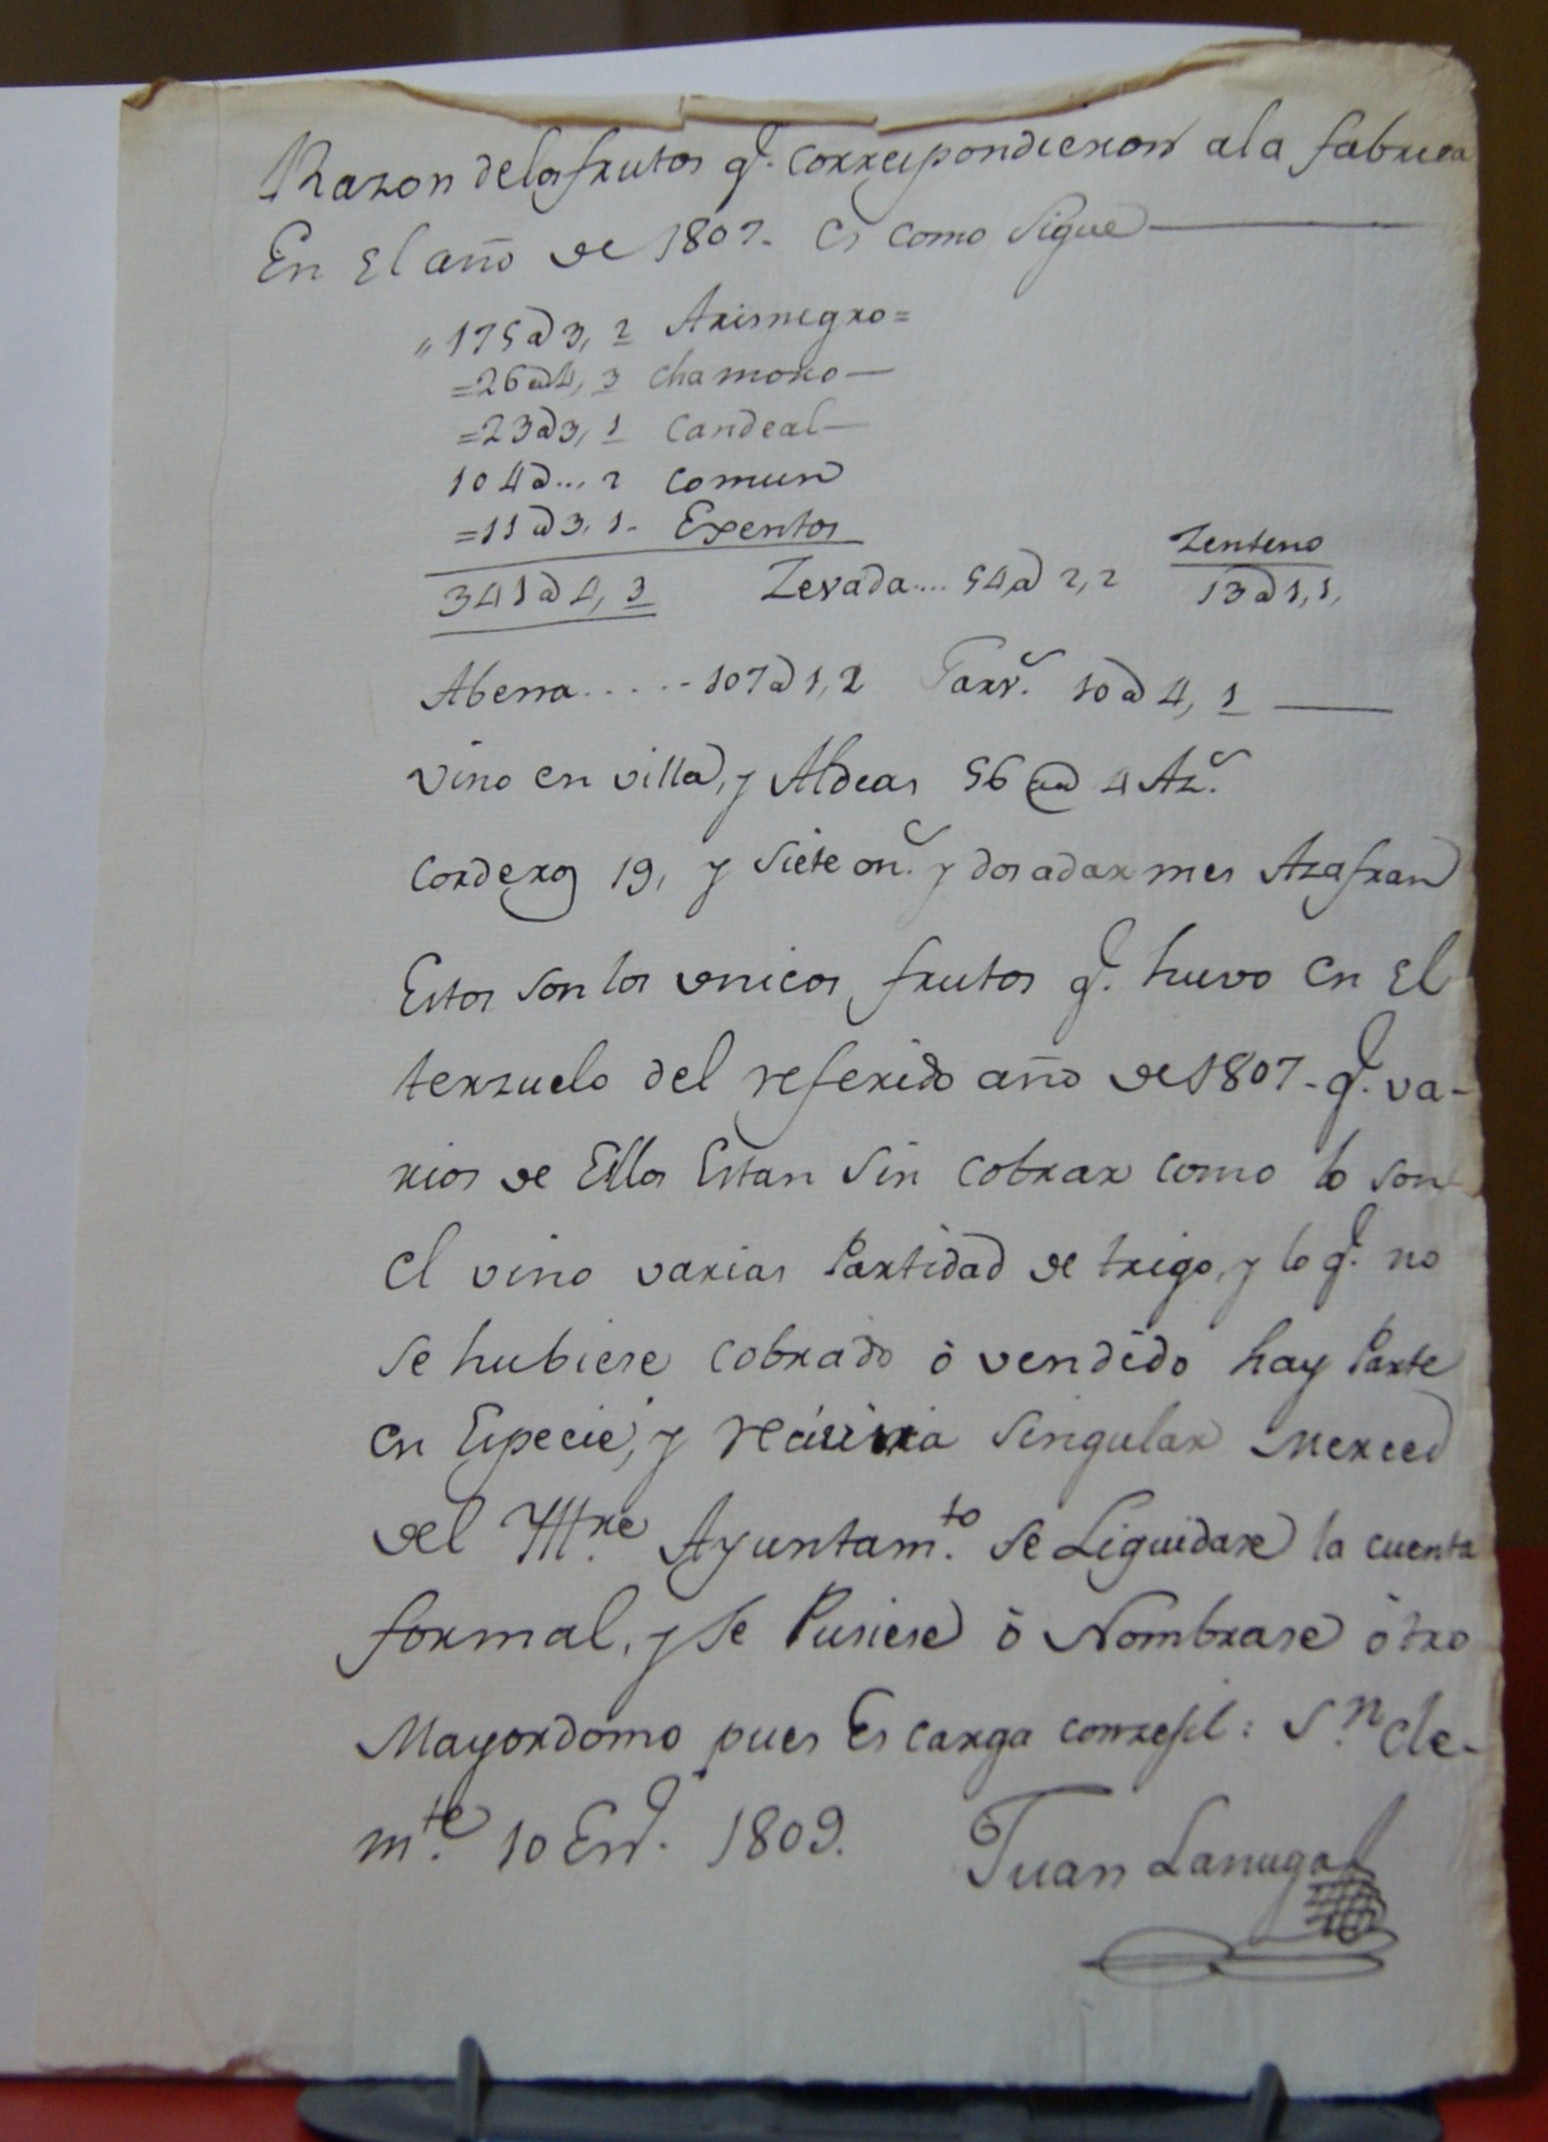 Razon delos frutos q.e correspondieron ala fabrica
En El año de 1807. es como sigue
" 175 @ 3, 2 Arisnegro =
= 26 @ 4, 3 Chamorro —
= 23 @ 3, 1 Candeal —
104 @ ... 2 Comun
= 11 @ 3, 1 - Exentos
Zenteno
341 @ 4, 3 Zevada .... 54 @ 2, 2 13 @ 1, 1,
Abena ..... - 107 @ 1, 2 10 @ 4, 1 —
vino en villa, y Aldeas 56 @ 4 Az.s
Corderos 19, y siete on.s y dos adarmes Azafran
Estos son los vnicos frutos q.e huvo en El
terzuelo del referido año de 1807 - q.e va-
rios de Ellos Estan sin cobrar como lo son
el vino varias Partidad de trigo, y lo q.e no
se hubiese cobrado ò vendido hay Parte
en Especie, y singular merced
del Yll.tre Ayuntam.to se Liquidase la cuenta
formal, y se Pusiese ò Nombrase òtro
Mayordomo pues Es carga conzejil: S.n Cle-
m.te 10 En.o 1809. Juan